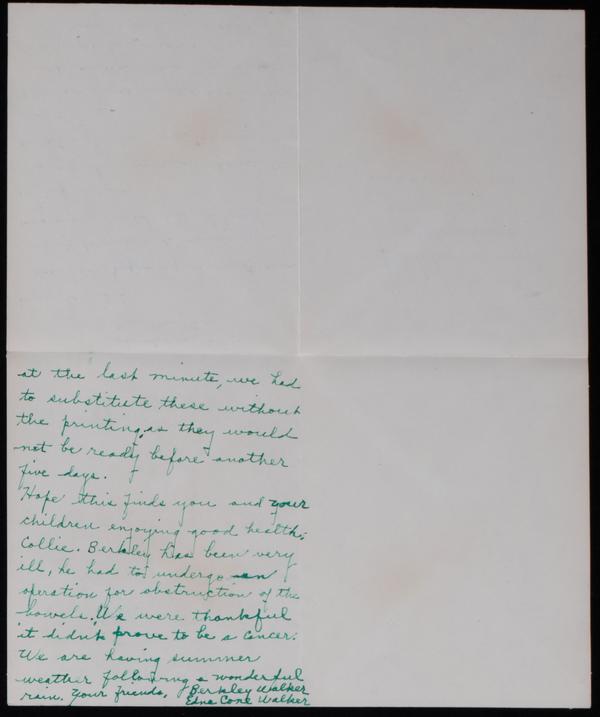 at the last minute, we had
to substitute these without
the printing, as they would
not be ready before another
five days.
Hope this finds you and your
children enjoying good health,
Collie. Berkley has been very
ill, he had to undergo an
operation for obstruction of the
bowels. We were thankful
it didn't prove to be a cancer.
We are having summer
weather following a wonderful
rain. Your friends, Berkley Walker
Edna Cone Walker